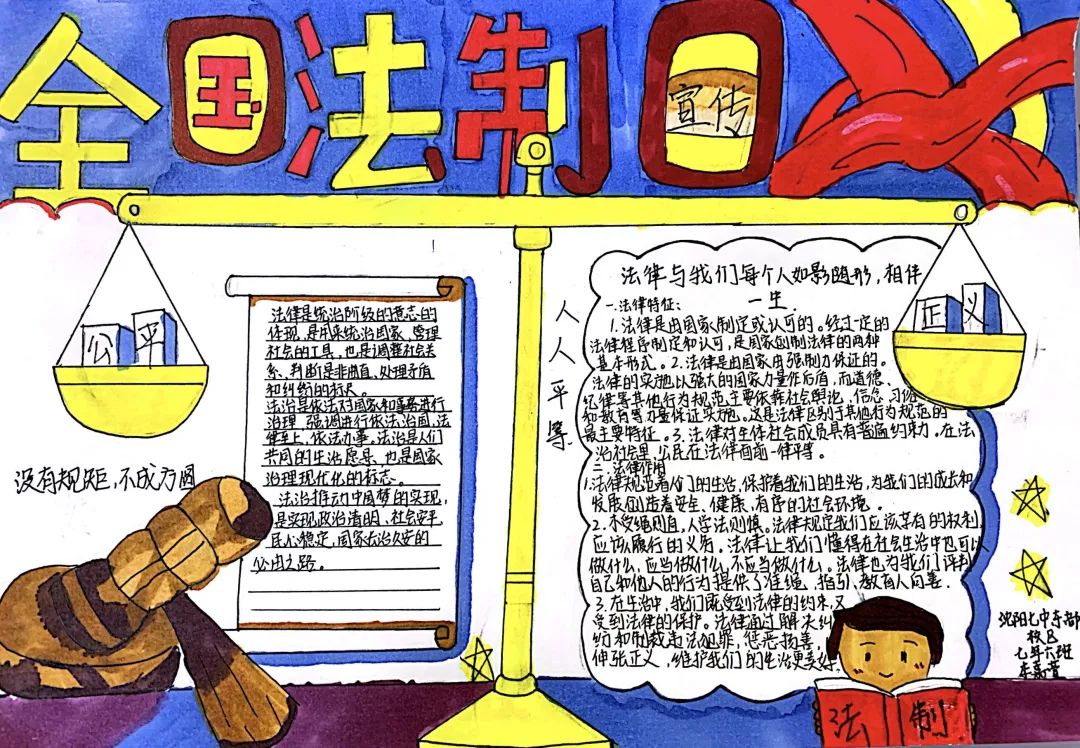 全国法制宣传日
公平
正义
没有规矩，不成方圆
法律是统治阶级的意志的
体现，是用来统治国家、管理
社会的工具，也是调整社会关
系、判断是非曲直、处理矛盾
和纠纷的标尺。
法治是依法对国家和事务进行
治理，强调进行依法治国，法
律至上，依法办事。法治是人们
共同的生活愿景，也是国家
治理现代化的标志。
法治推动中国梦的实现，
是实现政治清明，社会安平，
民心稳定，国家长治久安的
必由之路。
人人平等
法律与我们每个人如影随形，相伴
一生
一.法律特征：
1.法律是由国家制定或认可的。经过一定的
法律程序制定和认可，是国家创制法律的两种
基本形式。2.法律是由国家由强制力保证的。
法律的实施以强大的国家力量作后盾，而道德、
纪律等其他行为规范主要依靠社会舆论，信念，习俗
和教育等力量保证实施，这是法律区别于其他行为规范的
最主要特征。3.法律对全体社会成员具有普遍约束力。在法
治社会里，公民在法律面前一律平等。
二.法律作用
1.法律规范着人们的生活，保护着我们的生活，为我们的成长和
发展创造着安全、健康、有序的社会环境。
2.木受绳则直，人学法则慎。法律规定我们应该享有的权利，
应该履行的义务。法律让我们懂得在社会生活中也可以
做什么，应当做什么，不应当做什么。法律也为我们评判
自己和他人的行为提供了准绳，指引、教育人向善。
3.在生活中，我们既受到法律的约束，又
受到法律的保护。法律通过解决纠
纷和制裁违法犯罪，惩恶扬善，
伸张正义，维护我们的生活更美好
沈阳七中东部
校区
七年六班
法制